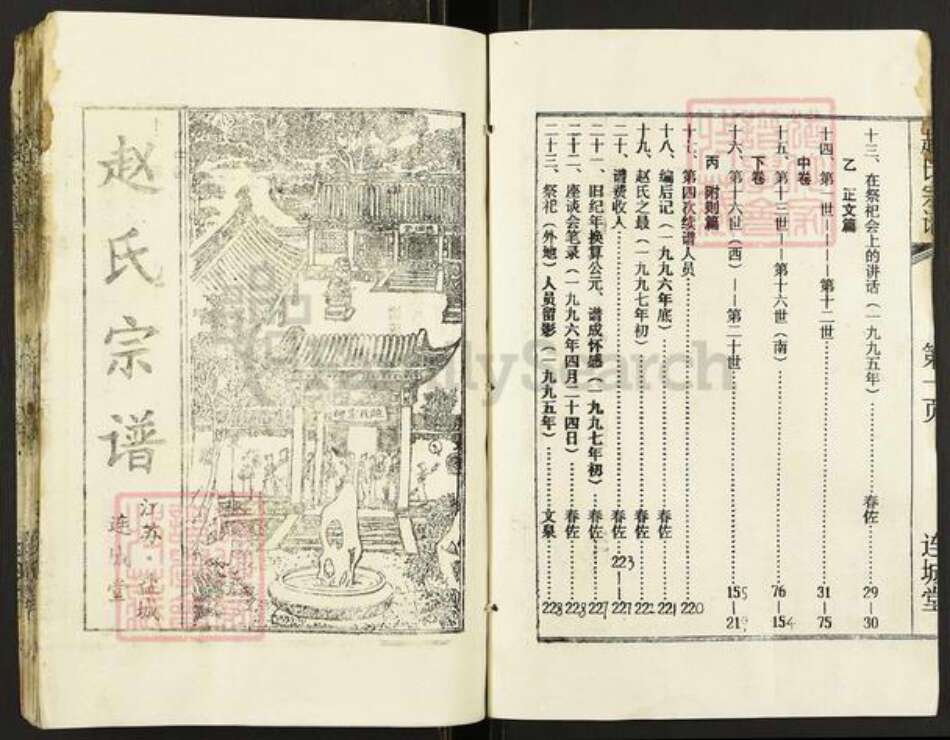 十三、在祭祀会上的讲话（一九九五年）……春佐……29—30
乙 正文篇
十四、第一世——第十二世……31—75
中卷
十五、第十三世——第十六世（南）……76—154
下卷
十六、第十六世（西）——第二十世……155—219
丙 附则篇
十七、第四次续谱人员……220
十八、编后记（一九九六年底）……春佐……221
十九、赵氏之最（一九九七年初）……春佐……222
二十、谱费收入……223—227
二十一、旧纪年换算公元、谱成怀感（一九九七年初）……春佐……227
二十二、座谈会笔录（一九九六年四月二十四日）……春佐……228
二十三、祭祀（外地）人员留影（一九九五年）……文泉……228
赵氏宗谱
第一页
连城堂
赵氏宗谱
江苏·盐城
连城堂
FamilySearch